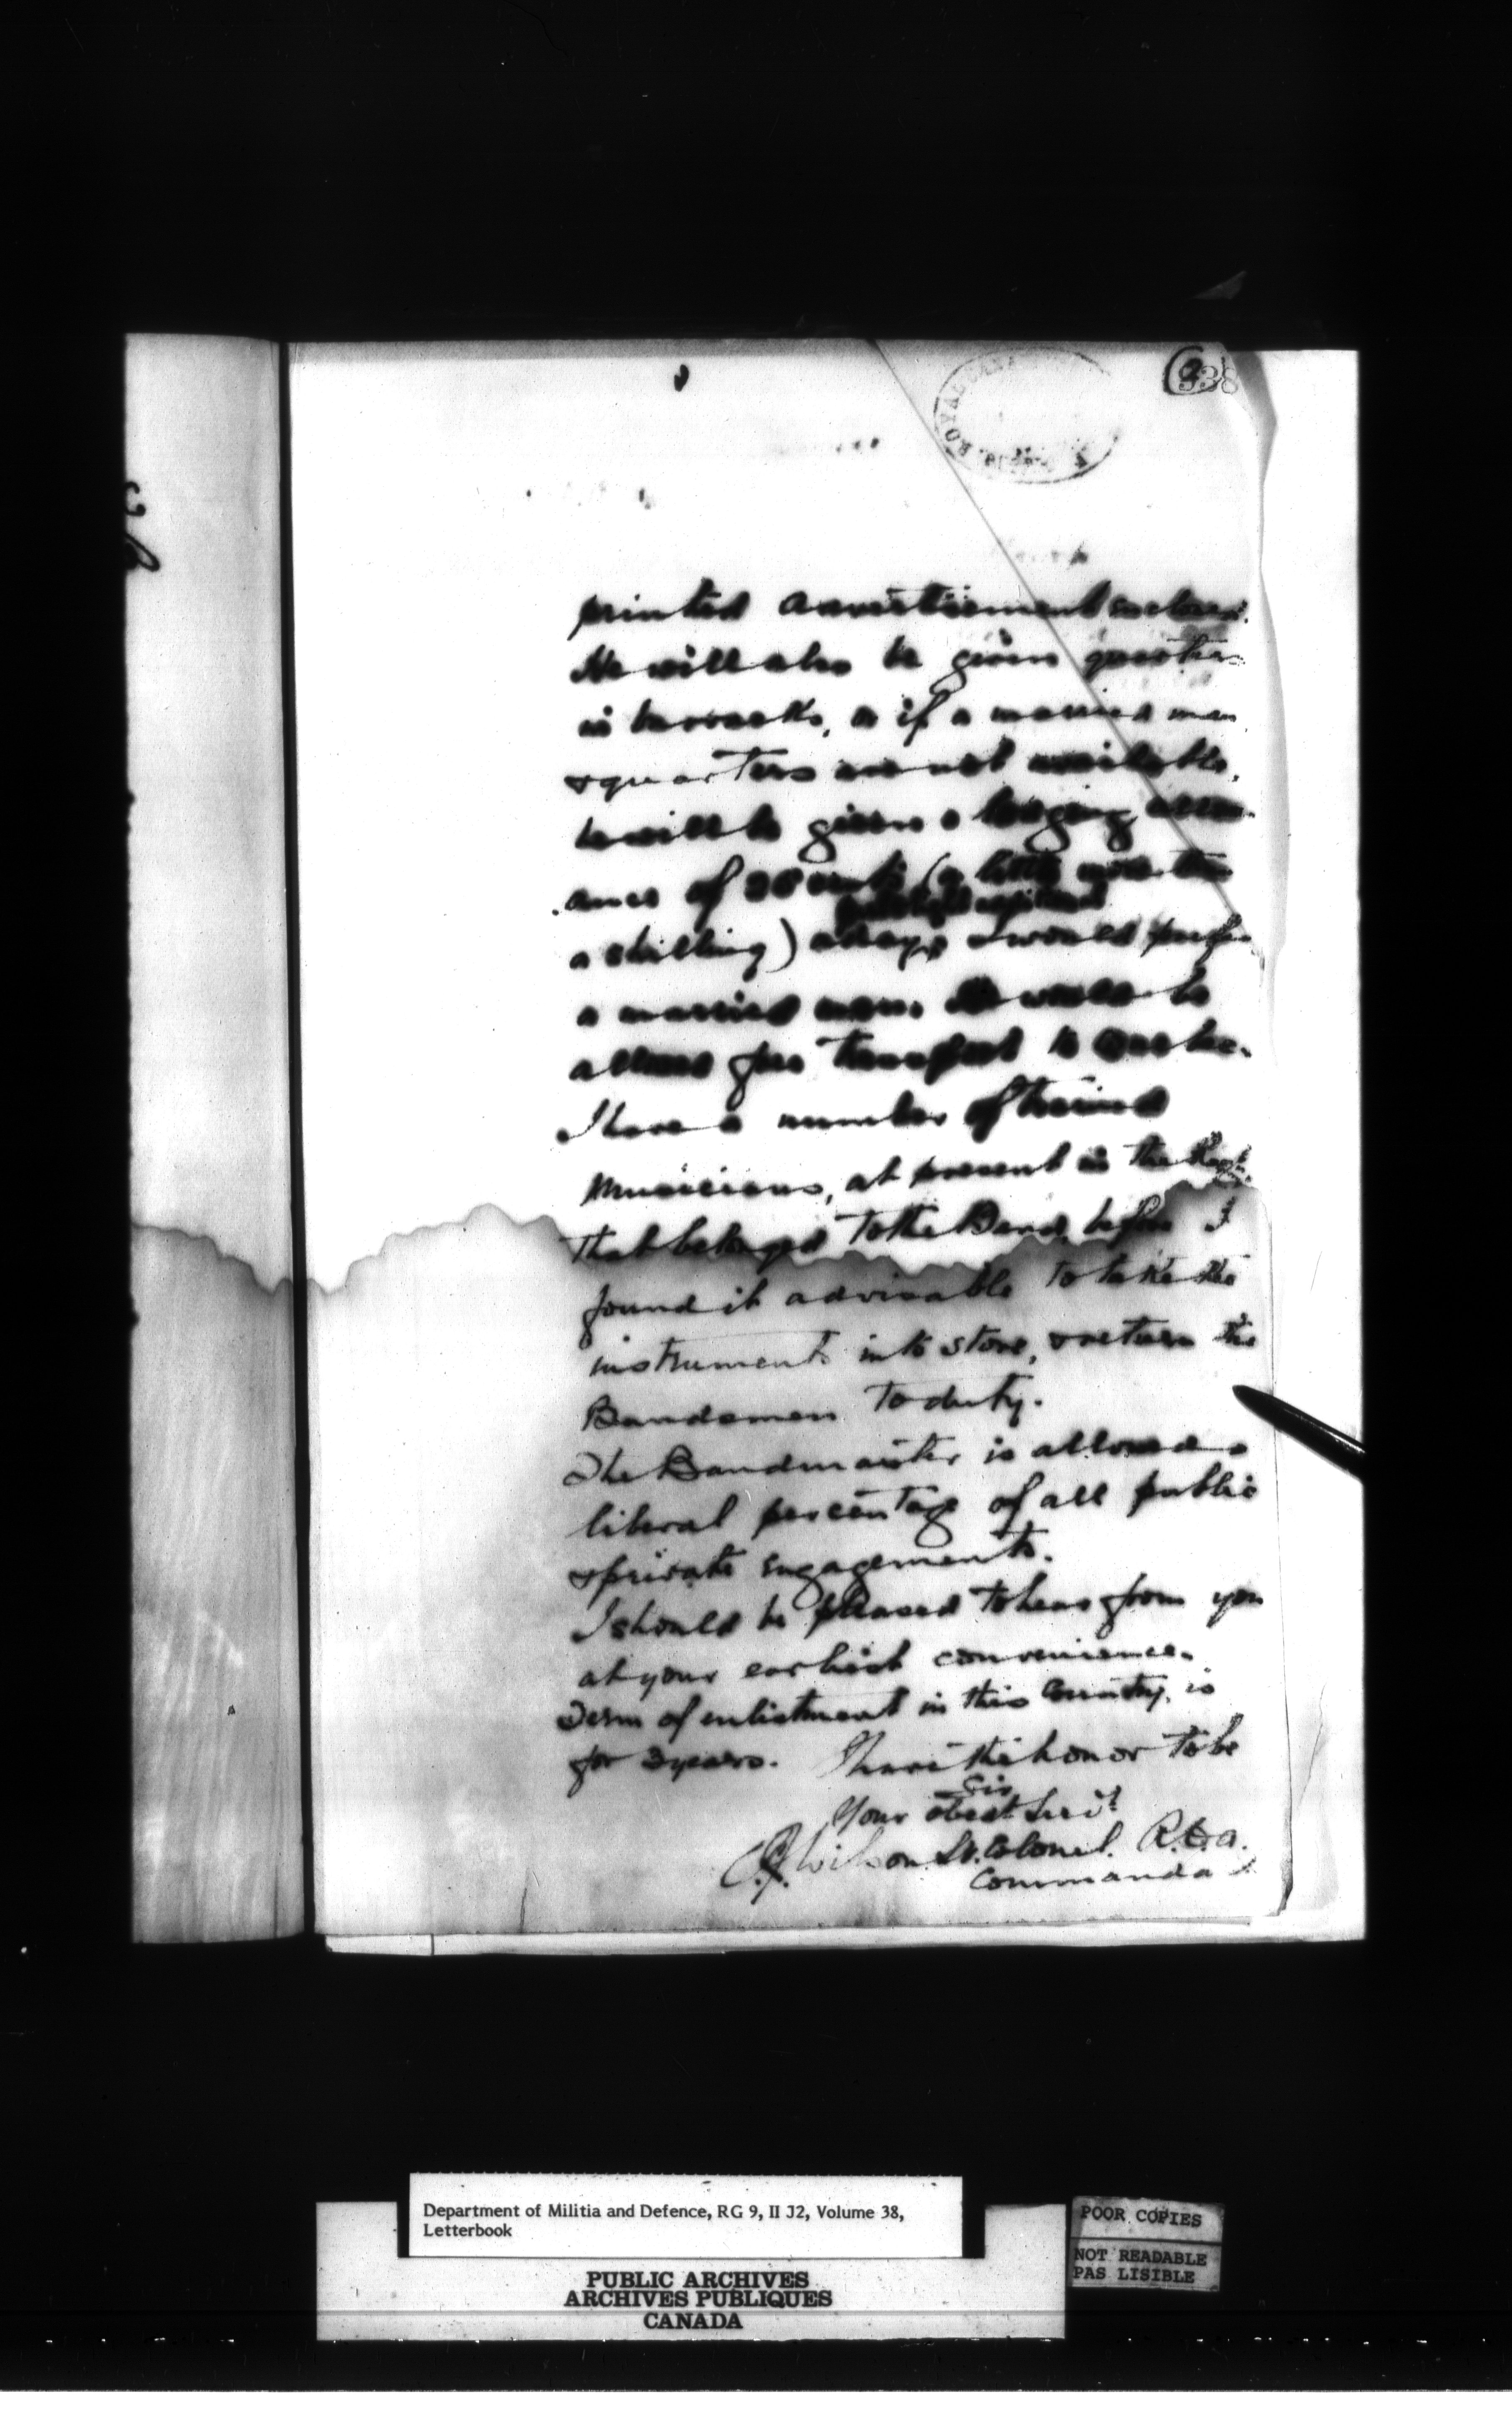 338
ROYAL
printed advertisement enclosed.
He will also be given quarters
in barracks, or if a married man
& quarters are not available,
he will be given a lodging allow-
ance of 28 cents (a little more than
a shilling) a day, I would prefer
a married man. He would be
allowed free transport to Quebec.
I have a number of trained
Musicians, at present in the Regt.
that belonged to the Band, before I
found it advisable to take the
instruments into store, & return the
Bandsmen to duty.
The Bandmaster is allowed a
liberal percentage of all public
& private engagements.
I should be pleased to hear from you
at your earliest convenience.
Term of enlistment in this Country, is
for 3 years. I have the honor to be
Sir
Your obedt Servt
Wilson Lt. Colonel. R.C.A.
Commanda
Department of Militia and Defence, RG 9, II J2, Volume 38,
Letterbook
PUBLIC ARCHIVES
ARCHIVES PUBLIQUES
CANADA
POOR COPIES
NOT READABLE
PAS LISIBLE